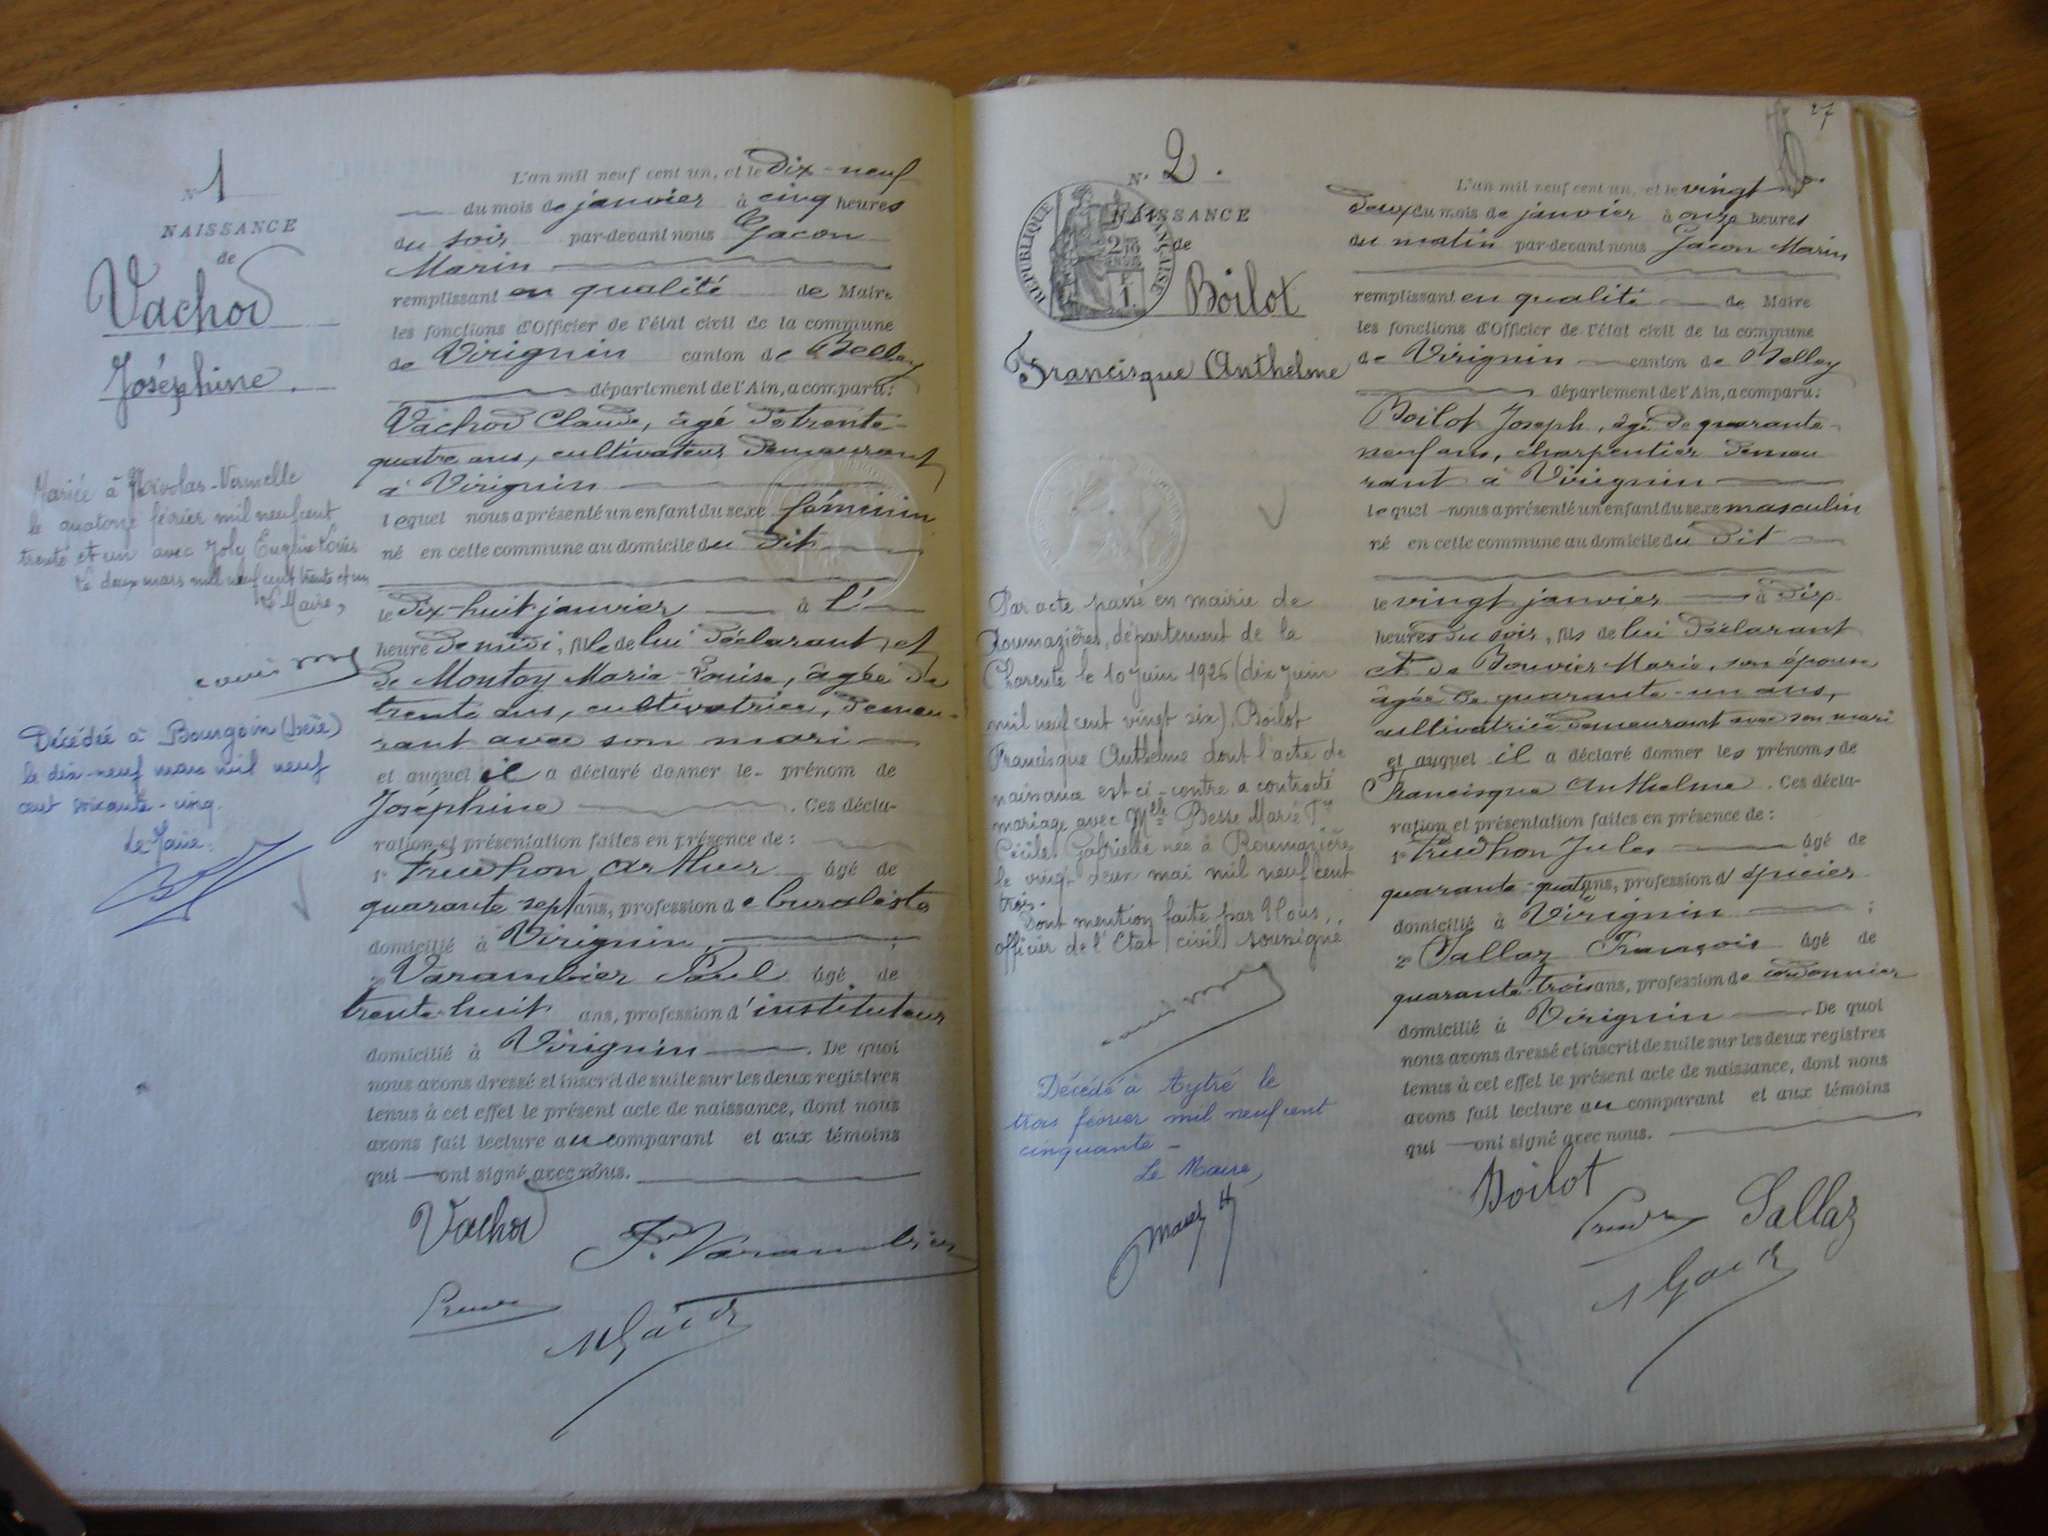 N° 1
NAISSANCE
de
Vachod
Joséphine.
Mariée à Nivolas-Vermelle
le quatorze février mil neuf cent
trente et un avec Joly Eugène Louis
le deux mars mil neuf cent trente et un
Le Maire,
Décédée à Bourgoin (Isère)
le dix-neuf mars mil neuf
cent soixante-cinq.
Le Maire.
L'an mil neuf cent un, et le Dix-neuf
du mois de janvier à cinq heures
du soir par-devant nous Gacon
Marin
remplissant en qualité de Maire
les fonctions d'Officier de l'état civil de la commune
de Virignin canton de Belley
département de l'Ain, a comparu :
Vachod Claude, âgé de trente-
quatre ans, cultivateur demeurant
à Virignin
lequel nous a présenté un enfant du sexe féminin
né en cette commune au domicile du dit
le dix-huit janvier à l'
heure de midi, fille de lui déclarant et
de Montoy Marie-Louise, âgée de
trente ans, cultivatrice, demeu-
rant avec son mari
et auquel il a déclaré donner le prénom de
Joséphine. Ces décla-
ration et présentation faites en présence de :
1° Prudhon Arthur âgé de
quarante sept ans, profession de buraliste
domicilié à Virignin,
2° Varambier Paul âgé de
trente-huit ans, profession d'instituteur
domicilié à Virignin. De quoi
nous avons dressé et inscrit de suite sur les deux registres
tenus à cet effet le présent acte de naissance, dont nous
avons fait lecture au comparant et aux témoins
qui ont signé avec nous.
Vachod
P. Varambier
M Gacon
27
N° 2.
NAISSANCE
de
RÉPUBLIQUE FRANÇAISE
Boilot
Francisque Anthelme
Par acte passé en mairie de
Roumazières, département de la
Charente le 10 juin 1926 (dix juin
mil neuf cent vingt six), Boilot
Francisque Anthelme dont l'acte de
naissance est ci-contre a contracté
mariage avec Melle Besse Marie
Cécile Gabrielle née à Roumazières
le vingt deux mai mil neuf cent
trois.
Dont mention faite par Nous,
officier de l'Etat civil soussigné
Décédé à Aytré le
trois février mil neuf cent
cinquante -
Le Maire,
L'an mil neuf cent un, et le vingt
deux du mois de janvier à onze heures
du matin par-devant nous Gacon Marin
remplissant en qualité de Maire
les fonctions d'Officier de l'état civil de la commune
de Virignin canton de Belley
département de l'Ain, a comparu :
Boilot Joseph, âgé de quarante-
neuf ans, charpentier demeu
rant à Virignin
lequel nous a présenté un enfant du sexe masculin
né en cette commune au domicile du dit
le vingt janvier à dix
heures du soir, fils de lui déclarant
et de Bouvier Marie, son épouse
âgée de quarante-un ans,
cultivatrice demeurant avec son mari
et auquel il a déclaré donner les prénoms de
Francisque Anthelme. Ces décla-
ration et présentation faites en présence de :
1° Prudhon Jules âgé de
quarante-quatre ans, profession d'épicier
domicilié à Virignin ;
2° Sallaz François âgé de
quarante-trois ans, profession de cordonnier
domicilié à Virignin De quoi
nous avons dressé et inscrit de suite sur les deux registres
tenus à cet effet le présent acte de naissance, dont nous
avons fait lecture au comparant et aux témoins
qui ont signé avec nous.
Boilot
Sallaz
M Gacon